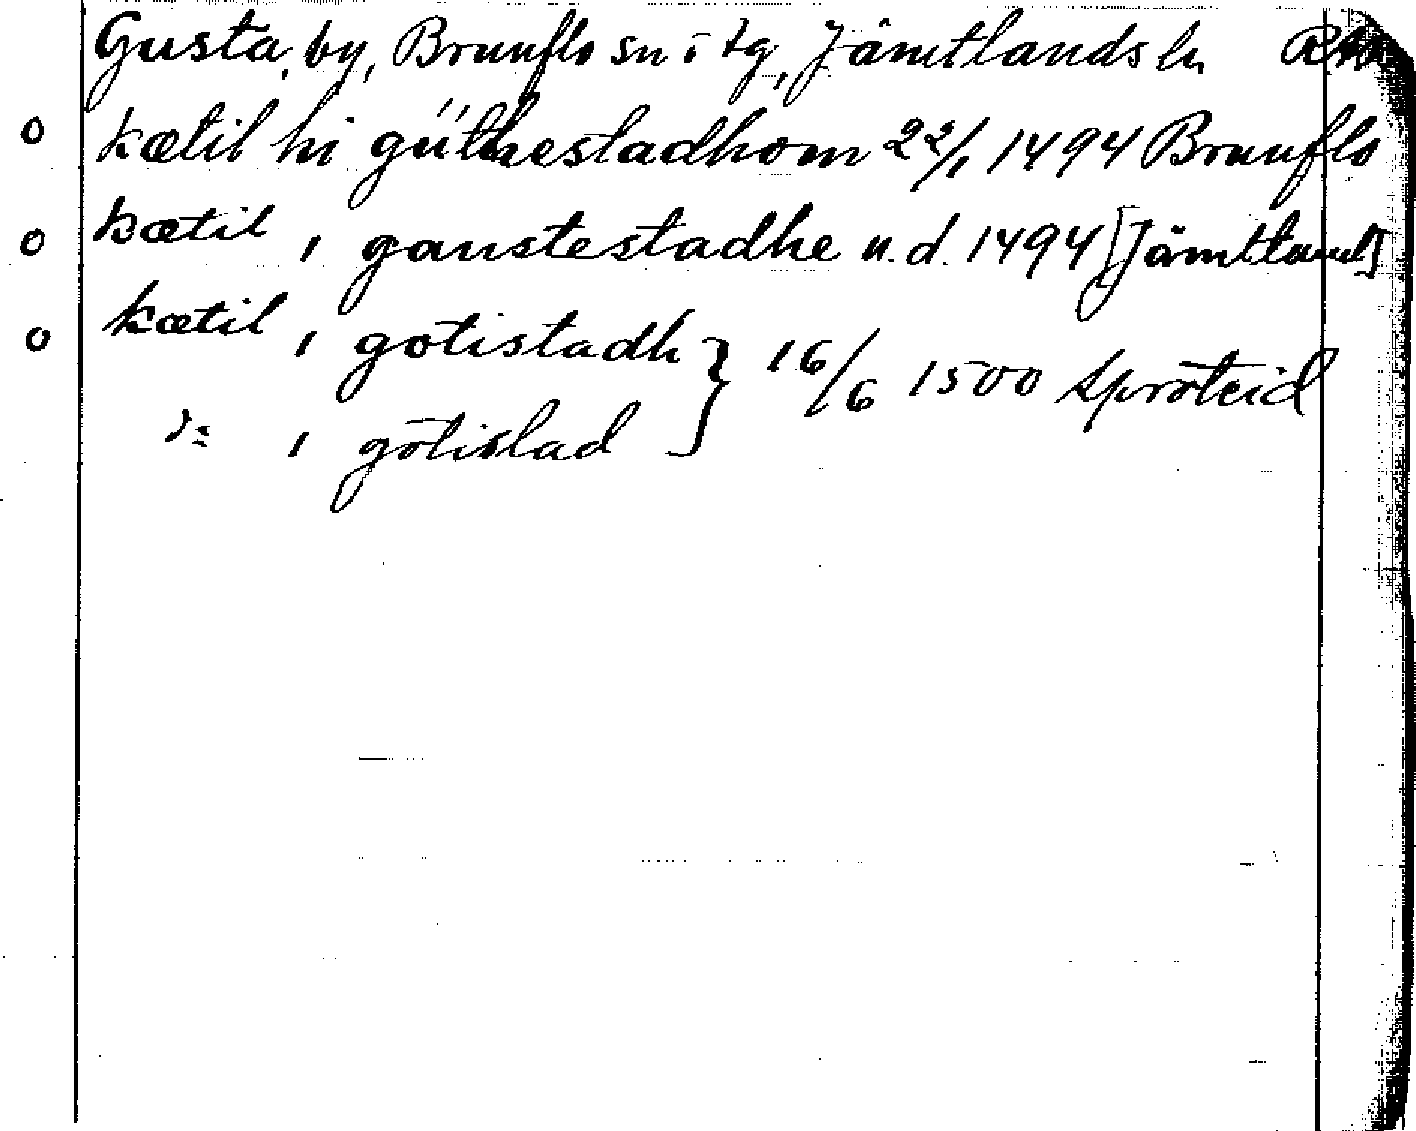 Gusta, by, Brunflo sn i tg, Jämtlands ln
o kætil hi güthestadhom 22/1 1494 Brunflo
o kætil i ganstestadhe u.d. 1494 [Jämtland]
o kætil i gotistadh } 16/6 1500 Spröteid
i götistad